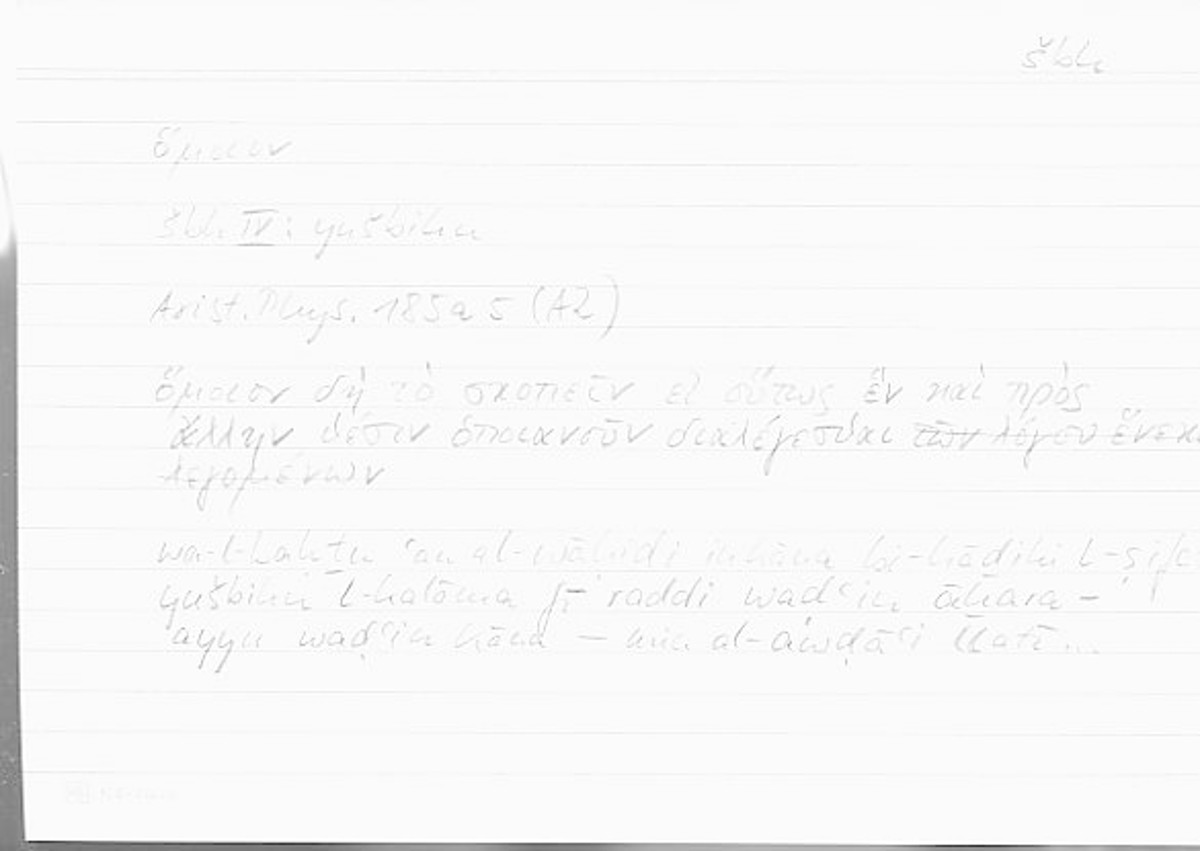 šbh
ὅμοιον
šbh IV: yušbihu
Arist. Phys. 185a5 (A2)
ὅμοιον δὴ τὸ σκοπεῖν εἰ οὕτως ἓν καὶ πρὸς
ἄλλην θέσιν ὁποιανοῦν διαλέγεσθαι τῶν λόγου ἕνεκα
λεγομένων
wa-l-baḥṯu ʿan al-wāḥidi in kāna bi-hāḏihi l-ṣifa
yušbihu l-kalāma fī raddi waḍʿin āḫara –
ayyu waḍʿin kāna – min al-awḍāʿi llatī...